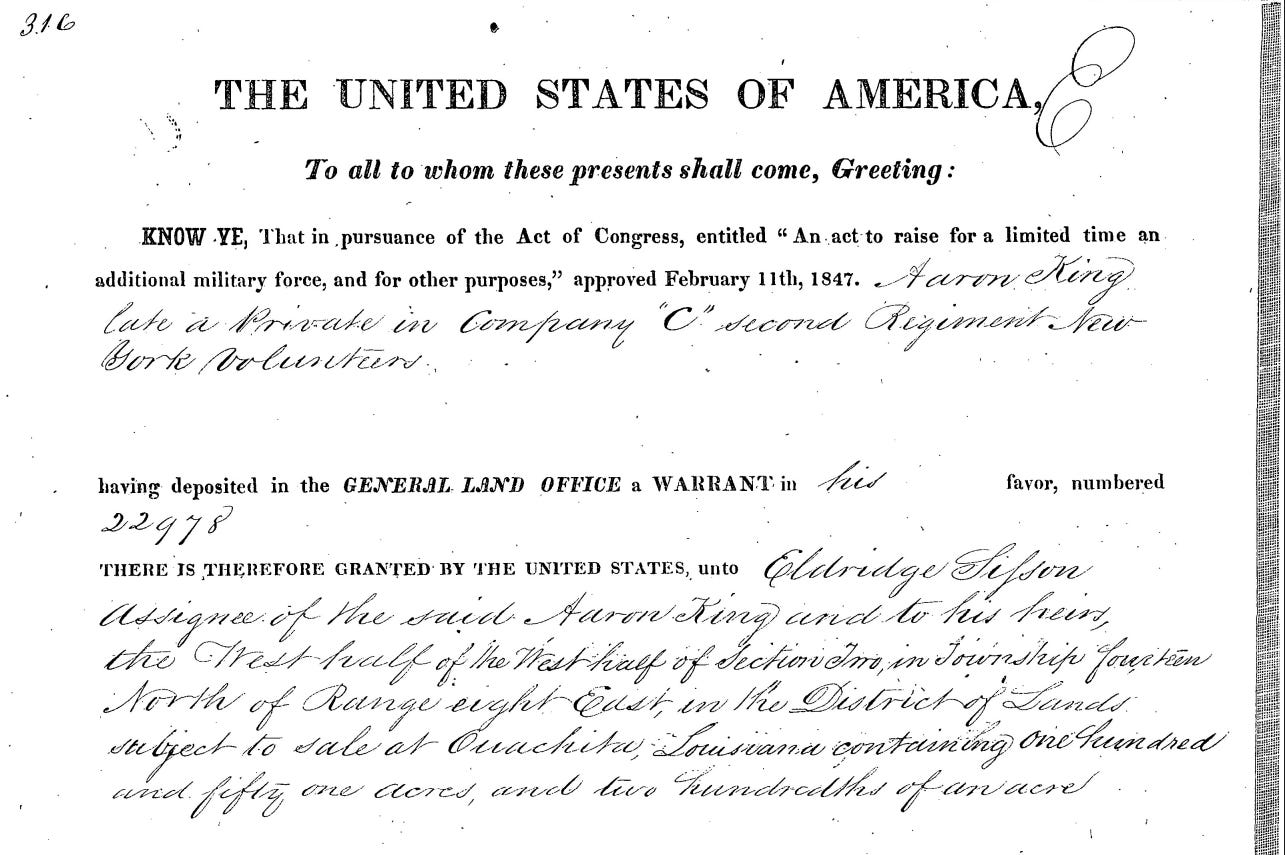 316
THE UNITED STATES OF AMERICA,
E
To all to whom these presents shall come, Greeting:
KNOW YE, That in pursuance of the Act of Congress, entitled “An act to raise for a limited time an
additional military force, and for other purposes,” approved February 11th, 1847. Aaron King
late a Private in Company "C" second Regiment New
York Volunteers.
having deposited in the GENERAL LAND OFFICE a WARRANT in his favor, numbered
22978
THERE IS THEREFORE GRANTED BY THE UNITED STATES, unto Eldridge Sifson
Assignee of the said Aaron King and to his heirs,
the West half of the West half of Section Two, in Township fourteen
North of Range eight East, in the District of Lands
subject to sale at Ouachita, Louisiana containing one hundred
and fifty one acres, and two hundredths of an acre